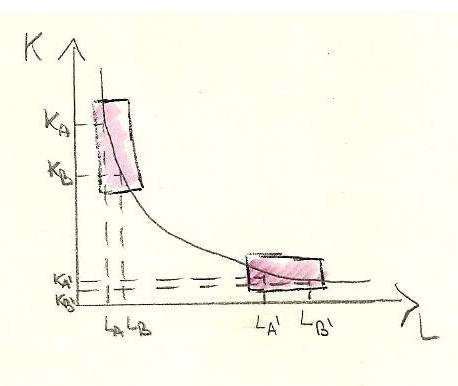 K
K_A
K_B
K_A'
K_B'
L_A L_B L_A' L_B' L